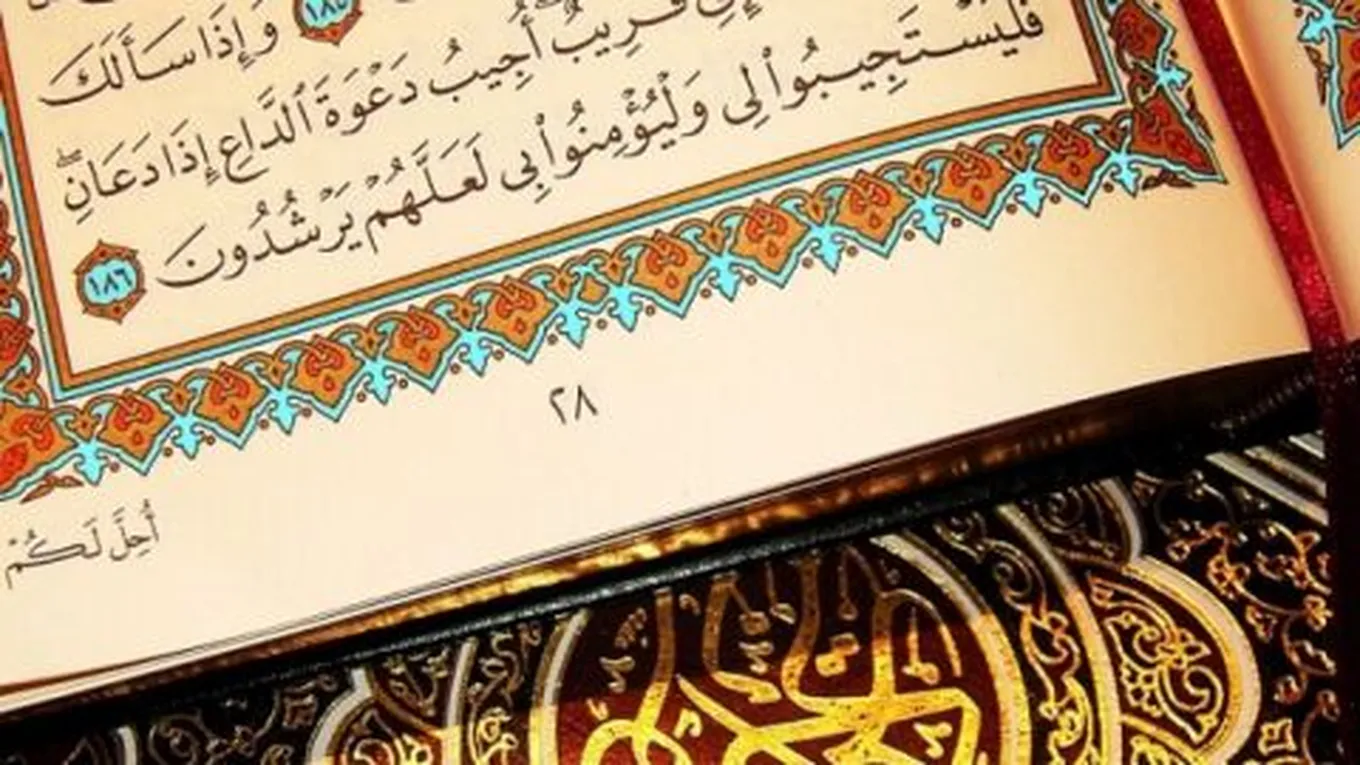 ١٨٥ وَإِذَا سَأَلَكَ
قَرِيبٌ ۖ أُجِيبُ دَعْوَةَ ٱلدَّاعِ إِذَا دَعَانِ ۖ
فَلْيَسْتَجِيبُوا۟ لِى وَلْيُؤْمِنُوا۟ بِى لَعَلَّهُمْ يَرْشُدُونَ ١٨٦
٢٨
أُحِلَّ لَكُمْ